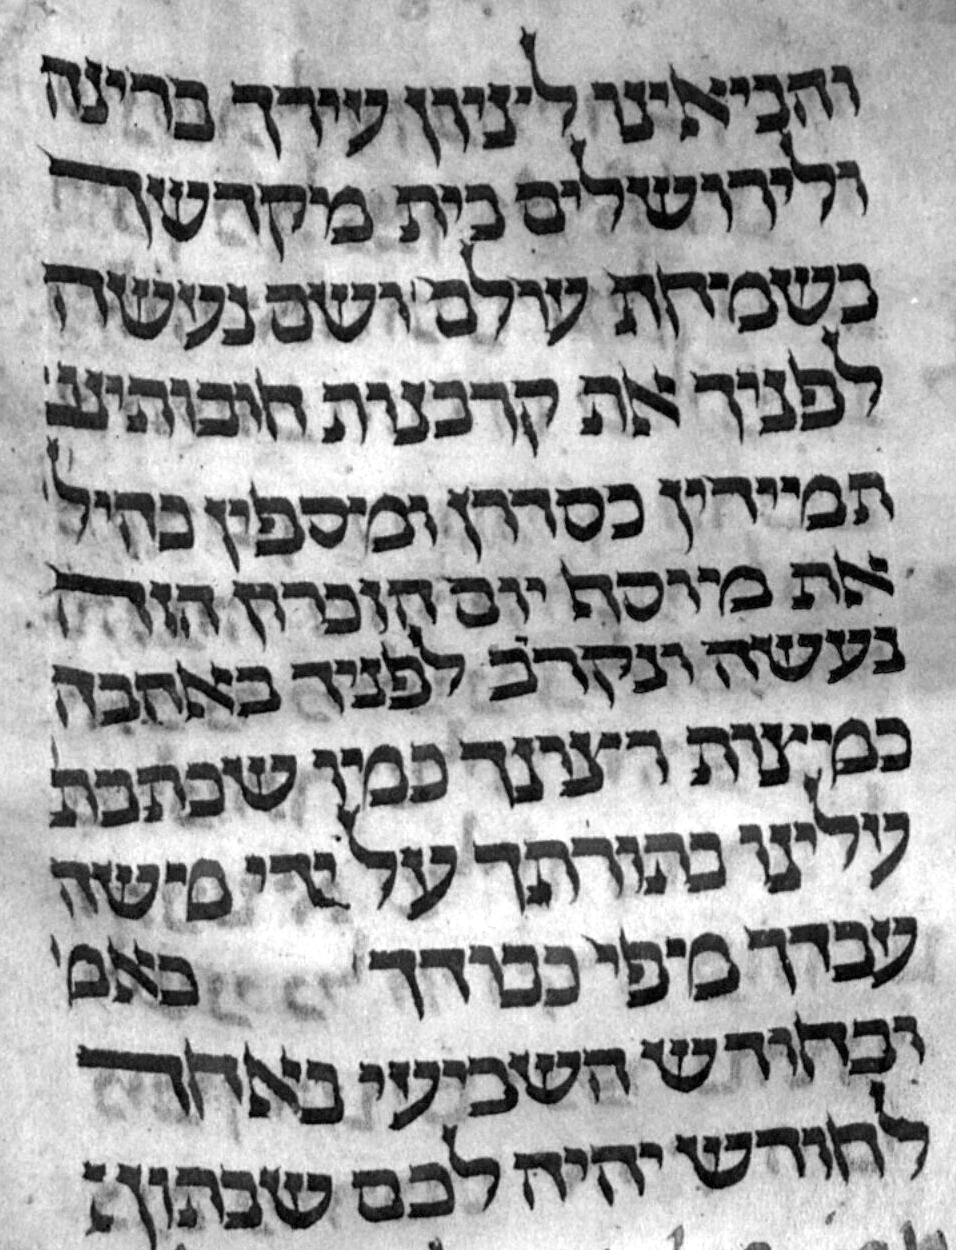 והביאינו לציון עירך ברינה
ולירושלים בית מקדשך
בשמיחת עולם ושם נעשה
לפניך את קרבנות חובותינו
תמיידין כסדרן ומוספין כהיל
את מיוסף יום הזכרון הזה
נעשה ונקרב לפניך באהבה
כמיצות רצונך כמו שכתבת
עלינו בתורתך על ידי משה
עבדך מפי כבודך כאמ
ובחודש השביעי באחד
לחודש יהיה לכם שבתון